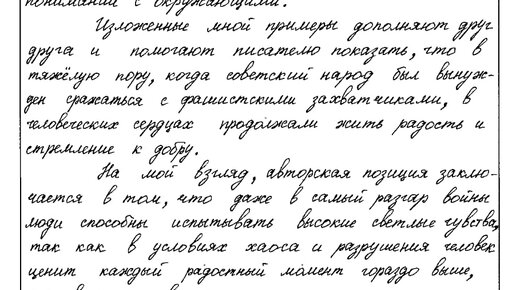 понимании с окружающими.
Изложенные мной примеры дополняют друг
друга и помогают писателю показать, что в
тяжёлую пору, когда советский народ был вынуж-
ден сражаться с фашистскими захватчиками, в
человеческих сердцах продолжали жить радость и
стремление к добру.
На мой взгляд, авторская позиция заклю-
чается в том, что даже в самый разгар войны
люди способны испытывать высокие светлые чувства,
так как в условиях хаоса и разрушения человек
ценит каждый радостный момент гораздо выше,